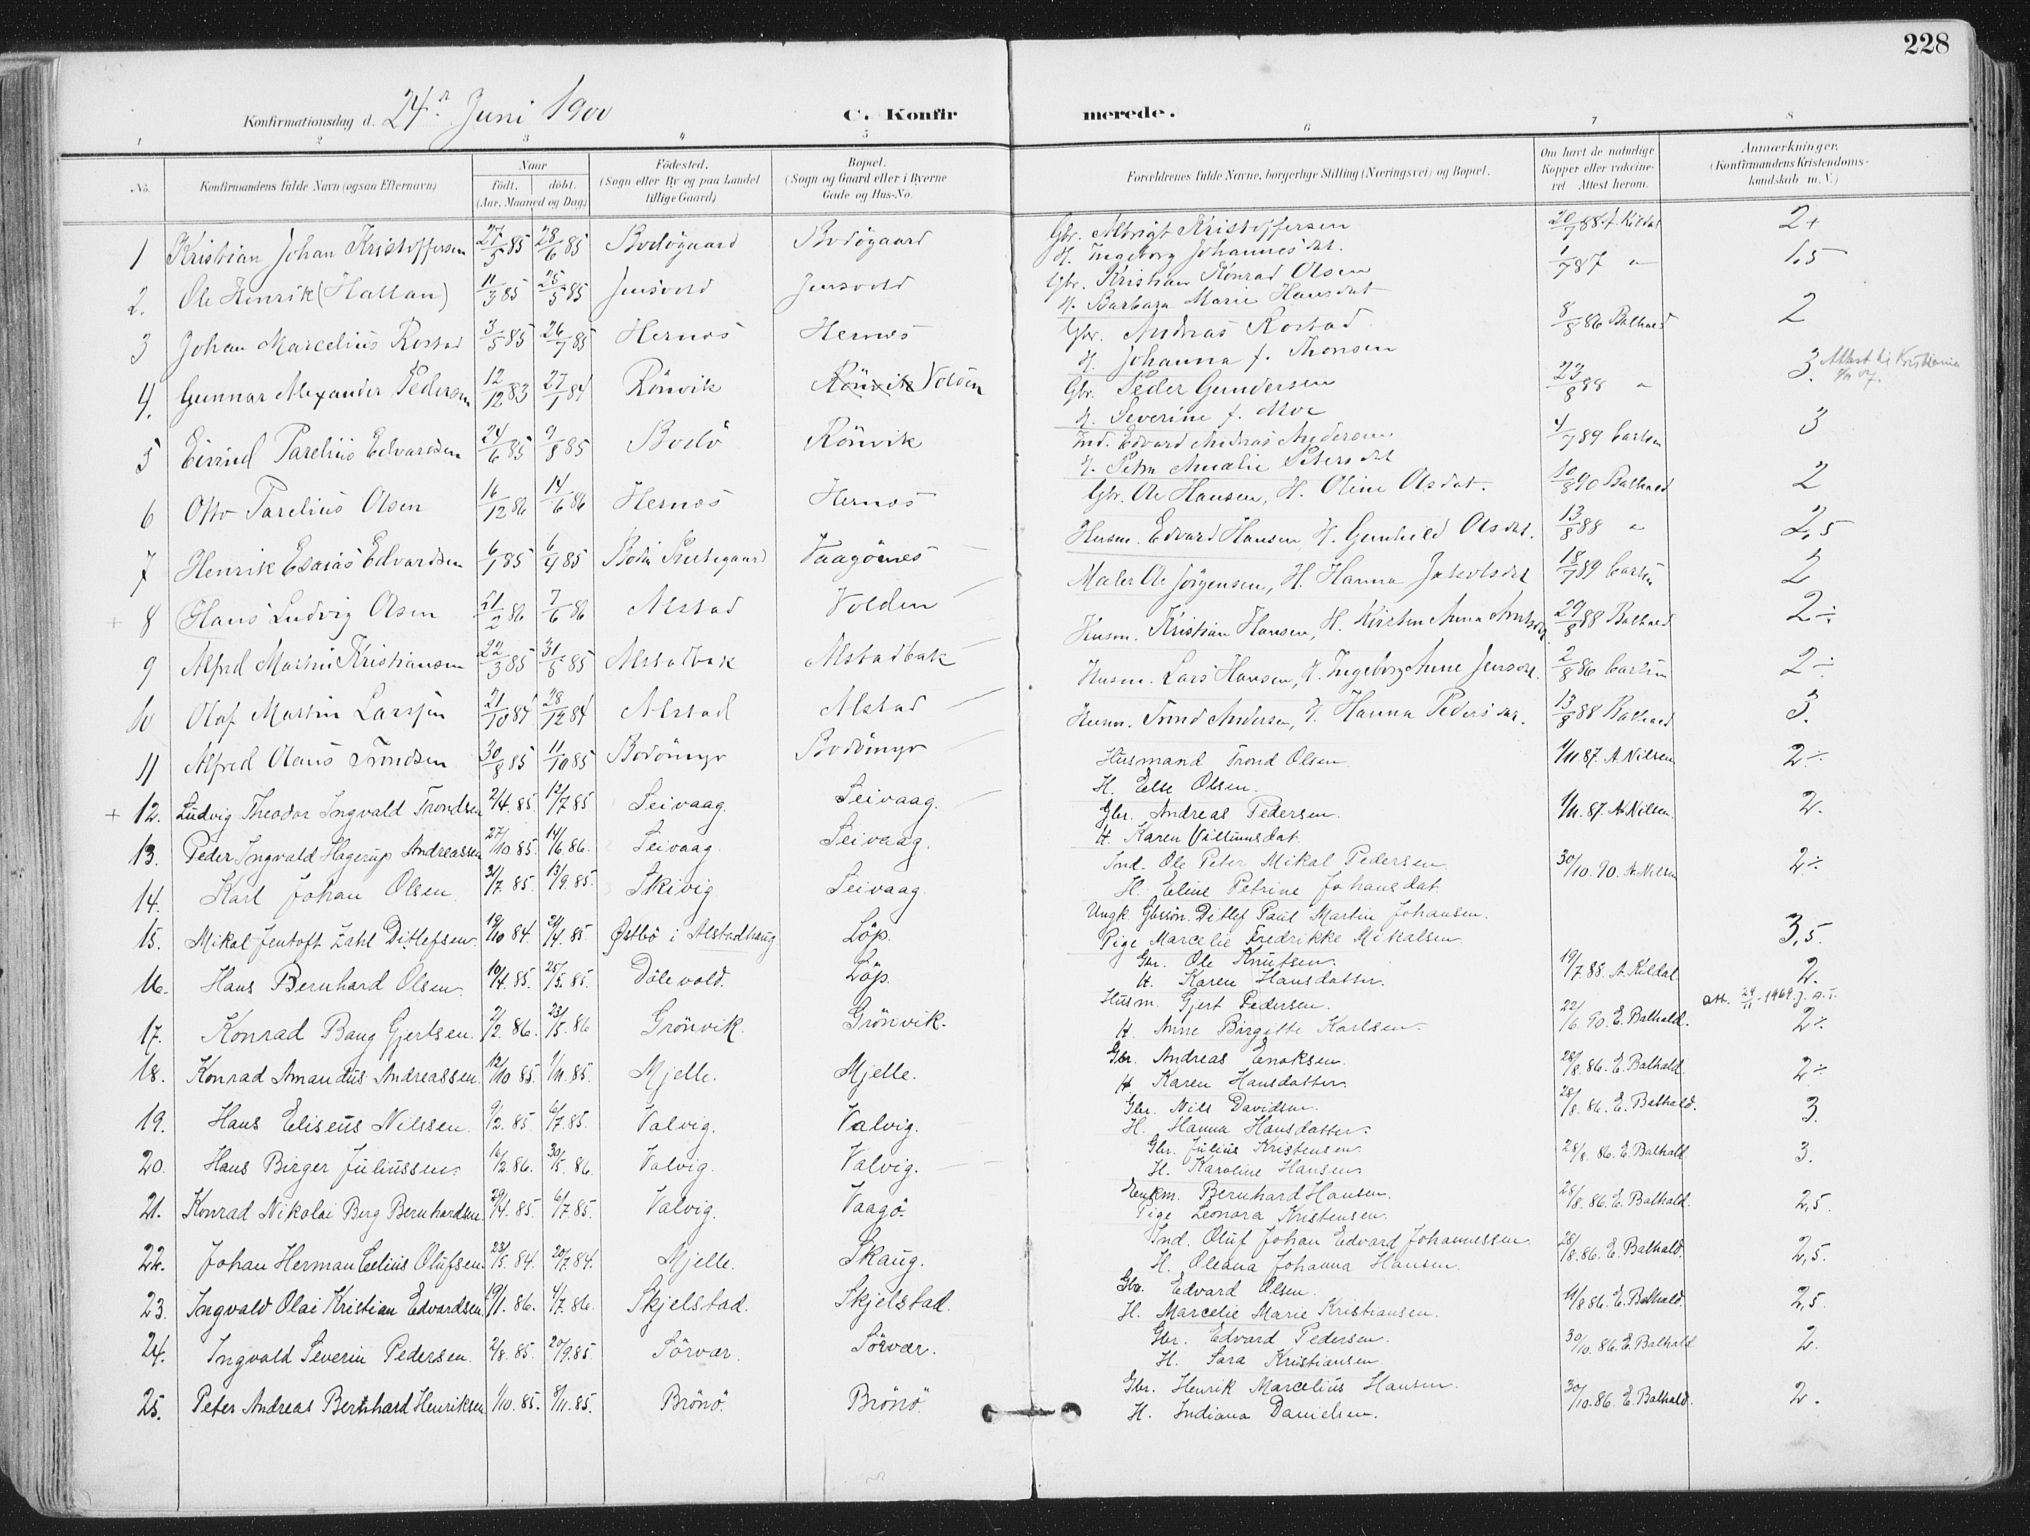 228
Konfirmationsdag d. 24. Juni 1900 C. Konfirmerede.
1 2 3 4 5 6 7 8
No. Konfirmandens fulde Navn (ogsaa Efternavn) Naar født. døbt. (Aar, Maaned og Dag) Fødested. (Sogn eller By og paa Landet tillige Gaard) Bopæl. (Sogn og Gaard eller i Byerne Gade og Hus-No. Forældrenes fulde Navne, borgerlige Stilling (Næringsvei) og Bopæl. Om havt de naturlige Kopper eller vakcineret Attest herom. Anmærkninger. (Konfirmandens Kristendomskundskab m. V.)
1 Kristian Johan Kristoffersen 27/5 85 28/6 85 Bodøgaard Bodøgaard Gbr. Albrigt Kristoffersen H. Ingeborg Johannesdat. 20/7 88 A. Kildal 2+
2. Ole Henrik (Hallan) 11/3 85 25/5 85 Jensvold Jensvold Gbr. Kristian Konrad Olsen H. Barbara Marie Hansdat 1/7 87 " 1.5
3 Johan Marcelius Rostad 3/5 85 26/7 85 Hernes Hernes Gbr. Andreas Rostad H. Johanna f. Thonsen 8/8 86 Balhald 2
4. Gunnar Alexander Pedersen 12/12 83 27/1 84 Rönvik Rönvik Volden Gbr. Peder Gundersen H. Severine f. Moe 23/8 88 " 3. Attest til Kristiania
5 Eivind Parelius Edvardsen 24/6 85 9/8 85 Bodö Rönvik Ind. Edvard Andreas Andersen H. Petra Amalie Petersdat 4/7 89 Carlsen 3
6 Otto Parelius Olsen 16/12 86 14/6 86 Hernes Hernes Gbr. Ole Hansen, H. Oline Olsdat. 10/8 90 Balhald 2
7 Henrik Esaias Edvardsen 6/1 85 6/4 85 Bodin Prestegaard Vaagönes Husm. Edvard Hansen H. Gunhild Olsdat. 13/8 88 " 2,5
+ 8 Hans Ludvig Olsen 21/2 86 7/6 86 Alstad Volden Maler Ole Jörgensen, H. Hanna Jakobsdat 18/7 89 Carlsen 2
9 Alfred Martin Kristiansen 22/3 85 31/5 85 Alstadbak Alstadbak Husm. Kristian Hansen, H. Kirsten Anna Arntsdat 29/8 88 Balhald 2÷
10 Olaf Martin Larssen 21/10 84 28/12 84 Alstad Alstad Husm. Lars Hansen, H. Ingeborg Anne Jensdat. 2/8 86 Carlsen 2÷
11 Alfred Olaus Trondsen 30/8 85 11/10 85 Bodömyr Bodömyr Husm. Trond Andersen, H. Hanna Pedersdat. 13/8 88 Balhald 3.
+ 12. Ludvig Theodor Ingvald Trondsen 2/4 85. 12/7 85 Seivaag. Seivaag. Husmand Trond Olsen. H. Else Olsen. 1/11 87. A Nilsen 2÷
13. Peder Ingvald Hagerup Andreassen 27/10 85. 14/6 86. Seivaag. Seivaag. Gbr. Andreas Pedersen. H. Karen Villumsdat. 1/11. 87. A Nilsen. 2.
14. Karl Johan Olsen 31/7. 85. 13/9. 85. Skivig. Seivaag. Ind. Ole Peter Mikal Pedersen H. Eline Petrine Johansdat. 30/10. 90. A Nilsen 2÷
15. Mikal Jentoft Zahl Ditlefsen 19/10 84. 24/4. 85. Østbö i Alstadhaug Löp. Ungk. Gbrsön. Ditlef Paul Martin Johansen. Pige Marcelie Fredrikke Mikalsen 3,5.
16. Hans Bernhard Olsen. 10/4. 85. 25/5. 85. Dölevold. Löp. Gbr. Ole Knutsen. H. Karen Hansdatter 19/7. 88. A. Kildal 2.
17. Konrad Bang Gjertsen. 2/2. 86. 23/5. 86 Grönvik. Grönvik. Husm. Gjert Pedersen. H. Anne Birgitte Karlsen. 22/6. 90. E. Balhald. Att. 24/11 - 1969. J. A. T. 2÷
18. Konrad Amandus Andreassen. 12/10 85. 1/11. 85. Mjelle. Mjelle. Gbr. Andreas Enoksen. H. Karen Hansdatter. 28/8. 86. E. Balhald. 2÷
19. Hans Eliseus Nilssen. 9/2. 85. 6/7. 85. Valvig. Valvig. Gbr. Nils Davidsen. H. Hanna Hansdatter. 28/8. 86. E. Balhald. 3.
20. Hans Birger Juliussen. 16/2. 86. 30/5. 86. Valvig. Valvig. Gbr. Julius Kristensen H. Karoline Hansen 28/8. 86. E. Balhald 3.
21. Konrad Nikolai Berg Bernhardsen. 29/4. 85. 6/7. 85. Valvig. Vaagö. Enkm. Bernhard Hansen. Pige Leonora Kristensen. 25/8. 86. E. Balhald. 2,5.
22. Johan Herman Celius Olufsen. 23/5. 84. 20/7 84. Mjelle. Skaug. Ind. Oluf Johan Edvard Johannessen H. Oleana Johanna Hansen. 28/8. 86. E. Balhald. 2,5.
23. Ingvald Olai Kristian Edvardsen. 19/1. 86. 4/7. 86. Skjelstad. Skjelstad. Gbr. Edvard Olsen. H. Marcelie Marie Kristiansen. 19/8. 86. E. Balhald. 2,5.
24. Ingvald Severin Pedersen. 2/8. 85. 20/9. 85. Sörvær. Sörvær. Gbr. Edvard Pedersen. H. Sara Kristiansen. 30/10. 86. E. Balhald 2.
25. Peter Andreas Bernhard Henriksen 1/10. 85. 8/11. 85. Brönö. Brönö. Gbr. Henrik Marcelius Hansen. H. Indiana Danielsen. 30/10. 86. E. Balhald. 2.